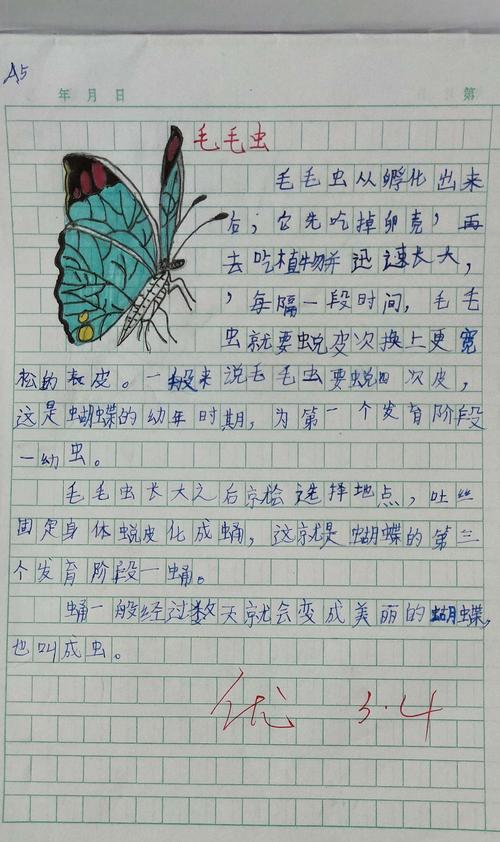 A5
年 月 日 第
毛毛虫
毛毛虫从孵化出来
后，它先吃掉卵壳，再
去吃植物并迅速长大，
，每隔一段时间，毛毛
虫就要蜕皮次换上更宽
松的衣皮。一般来说毛毛虫要蜕四次皮，
这是蝴蝶的幼年时期，为第一个发育阶段
一幼虫。
毛毛虫长大之后就会选择地点，吐丝
固定身体蜕皮化成蛹，这就是蝴蝶的第三
个发育阶段一蛹。
蛹一般经过数天就会变成美丽的蝴蝶，
也叫成虫。
优 3.4